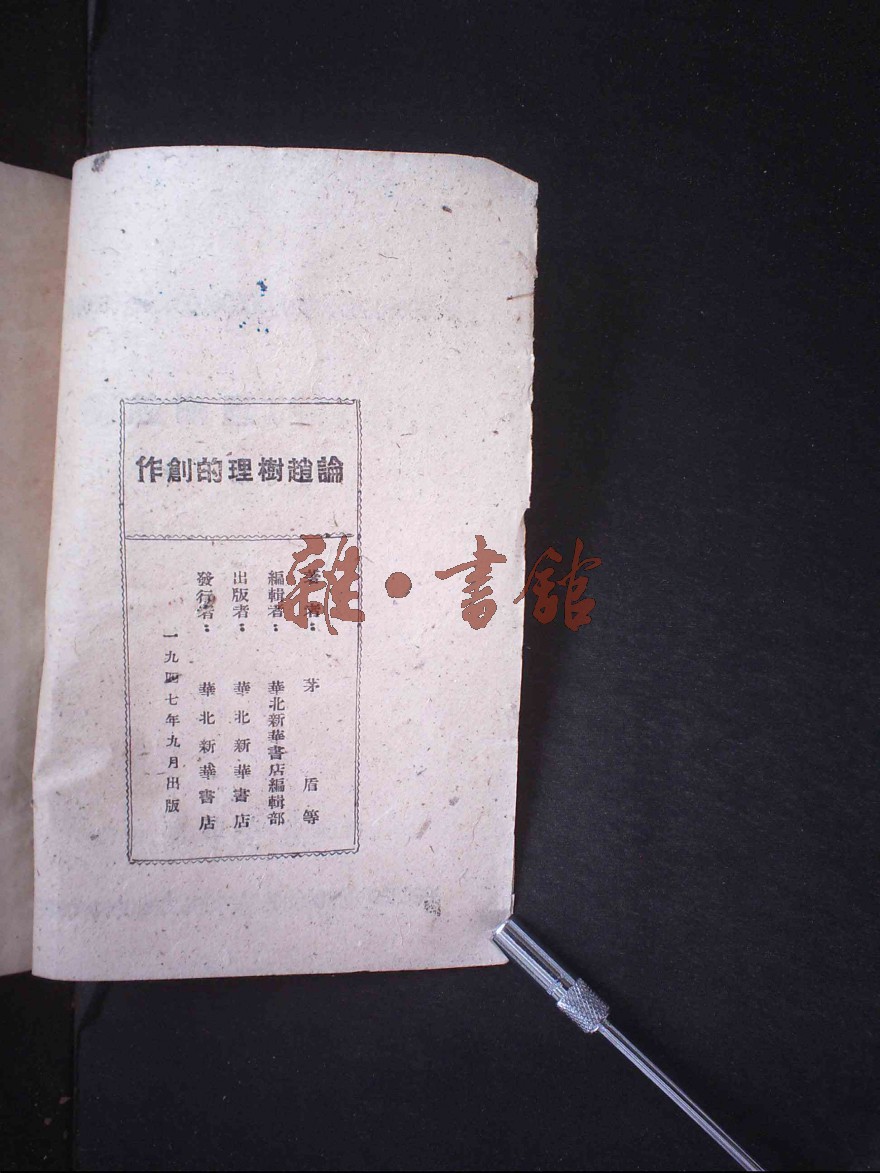 論趙樹理的創作
著者：茅盾等
編輯者：華北新華書店編輯部
出版者：華北新華書店
發行者：華北新華書店
一九四七年九月出版
雜·書館